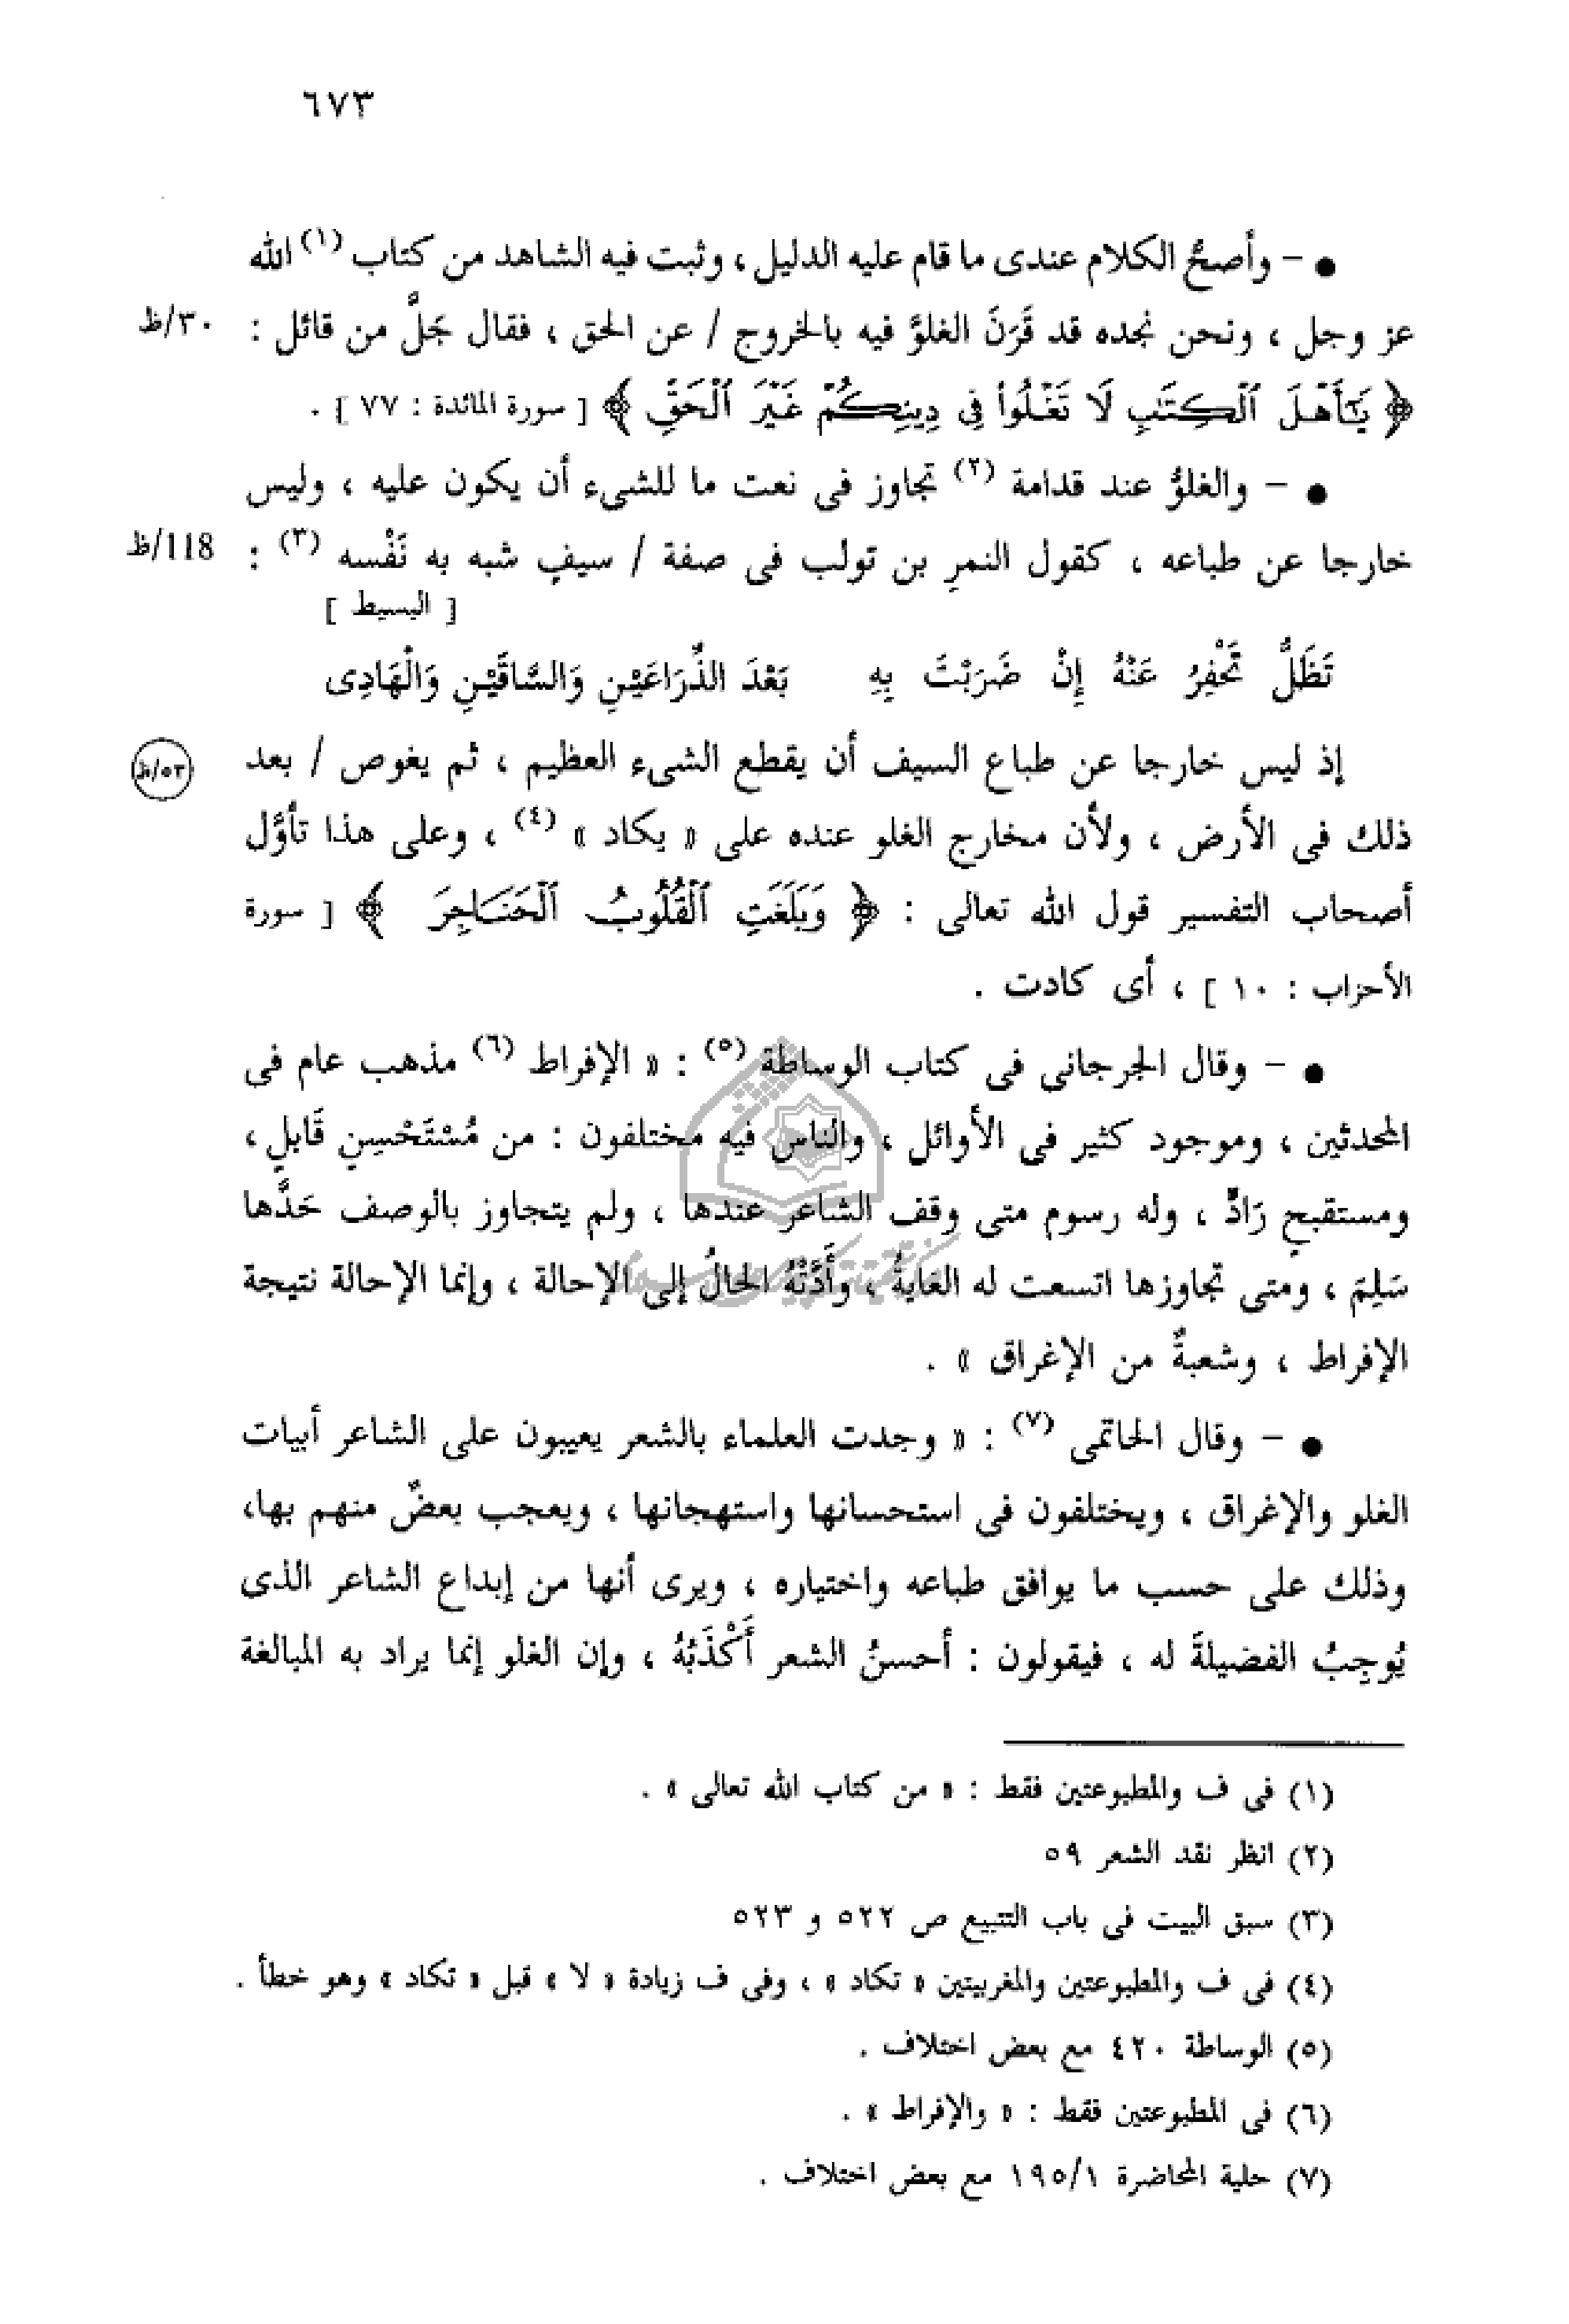 ٦٧٣
● – وأصحُّ الكلام عندى ما قام عليه الدليل ، وثبت فيه الشاهد من كتاب (١) الله
عز وجل ، ونحن نجده قد قَرَنَ الغلوَّ فيه بالخروج / عن الحق ، فقال جَلَّ من قائل : ٣٠/ظ
﴿ يَٰٓأَهْلَ ٱلْكِتَٰبِ لَا تَغْلُوا۟ فِى دِينِكُمْ غَيْرَ ٱلْحَقِّ ﴾ [ سورة المائدة : ٧٧ ] .
● – والغلوُّ عند قدامة (٢) تجاوز فى نعت ما للشىء أن يكون عليه ، وليس
خارجا عن طباعه ، كقول النمرِ بن تولب فى صفة / سيفٍ شبه به نَفْسه (٣) : 118/ظ
[ البسيط ]
تَظَلُّ تَحْفِرُ عَنْهُ إِنْ ضَرَبْتَ بِهِ بَعْدَ الذِّرَاعَيْنِ وَالسَّاقَيْنِ وَالْهَادِى
إذ ليس خارجا عن طباع السيف أن يقطع الشىء العظيم ، ثم يغوص / بعد ٥٣/ظ
ذلك فى الأرض ، ولأن مخارج الغلو عنده على « يكاد » (٤) ، وعلى هذا تأوَّل
أصحاب التفسير قول الله تعالى : ﴿ وَبَلَغَتِ ٱلْقُلُوبُ ٱلْحَنَاجِرَ ﴾ [ سورة
الأحزاب : ١٠ ] ، أى كادت .
● – وقال الجرجاني فى كتاب الوساطة (٥) : « الإفراط (٦) مذهب عام فى
المحدثين ، وموجود كثير فى الأوائل ، والناس فيه مختلفون : من مُسْتَحْسِنٍ قَابلٍ ،
ومستقبحٍ رَادٍّ ، وله رسوم متى وقف الشاعر عندها ، ولم يتجاوز بالوصف حَدَّها
سَلِمَ ، ومتى تجاوزها اتسعت له الغايةُ ، وأَدَّتْهُ الحالُ إلى الإحالة ، وإنما الإحالة نتيجة
الإفراط ، وشعبةٌ من الإغراق » .
● – وقال الحاتمى (٧) : « وجدت العلماء بالشعر يعيبون على الشاعر أبيات
الغلو والإغراق ، ويختلفون فى استحسانها واستهجانها ، ويعجب بعضٌ منهم بها،
وذلك على حسب ما يوافق طباعه واختياره ، ويرى أنها من إبداع الشاعر الذى
يُوجِبُ الفضيلةَ له ، فيقولون : أحسنُ الشعر أَكْذَبُهُ ، وإن الغلو إنما يراد به المبالغة
(١) فى ف والمطبوعتين فقط : « من كتاب الله تعالى » .
(٢) انظر نقد الشعر ٥٩
(٣) سبق البيت فى باب التتبيع ص ٥٢٢ و ٥٢٣
(٤) فى ف والمطبوعتين والمغربيتين « تكاد » ، وفى ف زيادة « لا » قبل « تكاد » وهو خطأ .
(٥) الوساطة ٤٢٠ مع بعض اختلاف .
(٦) فى المطبوعتين فقط : « والإفراط » .
(٧) حلية المحاضرة ١٩٥/١ مع بعض اختلاف .